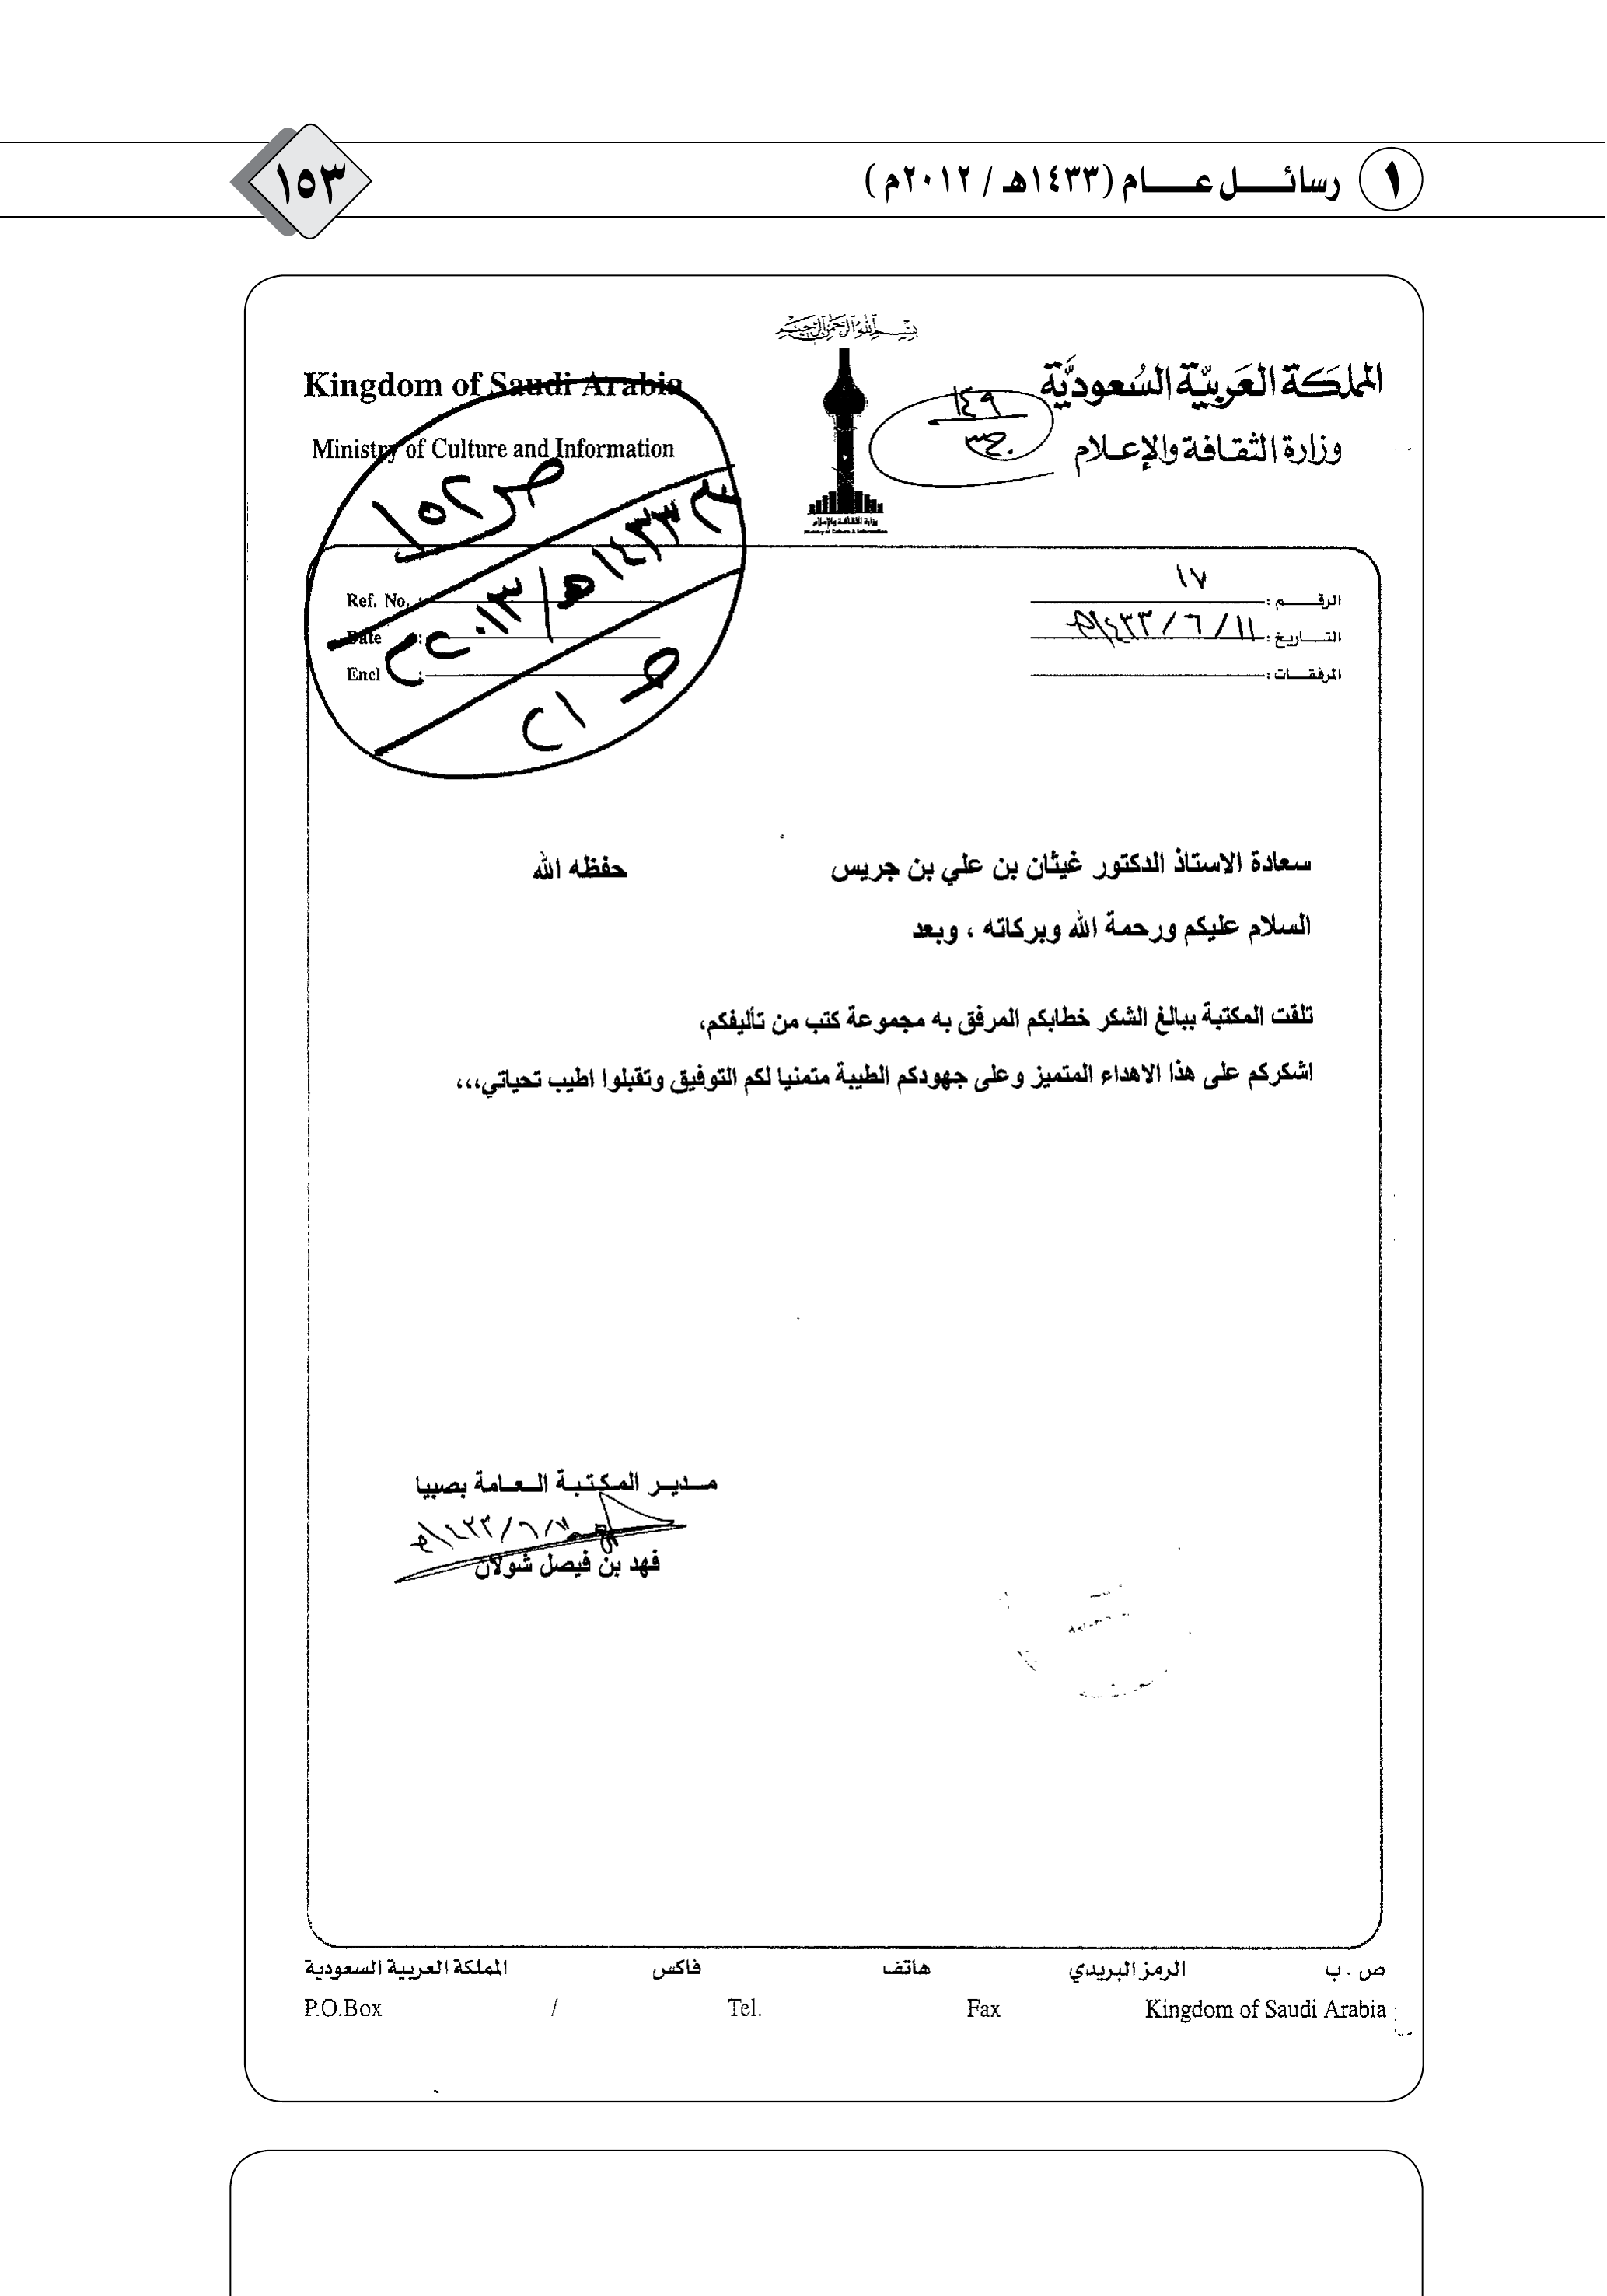 ١ رسائـــــل عـــــام (١٤٣٣هـ / ٢٠١٢م)
١٥٣
بسم الله الرحمن الرحيم
المملكة العربية السعودية
وزارة الثقافة والإعلام
Kingdom of Saudi Arabia
Ministry of Culture and Information
وزارة الثقافة والإعلام
Ministry of Culture & Information
١٤٩
ص ١٥٢
١٤٣٣هـ / ٢٠١٣م
الرقـــم : ١٧
التـــاريخ : ١١ / ٦ / ١٤٣٣هـ
المرفقـــات :
Ref. No. :
Date :
Encl :
سعادة الاستاذ الدكتور غيثان بن علي بن جريس حفظه الله
السلام عليكم ورحمة الله وبركاته ، وبعد
تلقت المكتبة ببالغ الشكر خطابكم المرفق به مجموعة كتب من تأليفكم،
اشكركم على هذا الاهداء المتميز وعلى جهودكم الطيبة متمنيا لكم التوفيق وتقبلوا اطيب تحياتي،،،
مــديــر المكتبة الــعــامة بصبيا
فهد بن فيصل شولان
ص . ب الرمز البريدي هاتف فاكس المملكة العربية السعودية
P.O.Box / Tel. Fax Kingdom of Saudi Arabia